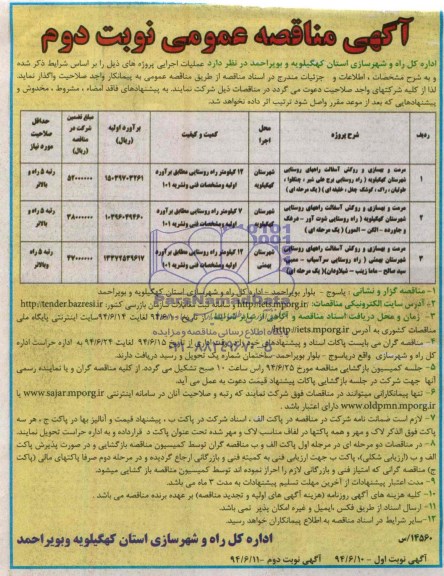 آگهی مناقصه عمومی نوبت دوم
اداره کل راه و شهرسازی استان کهگیلویه و بویراحمد در نظر دارد عملیات اجرایی پروژه های ذیل را بر اساس شرایط ذکر شده
و به شرح مشخصات ، اطلاعات و جزئیات مندرج در اسناد مناقصه از طریق مناقصه عمومی به پیمانکار واجد صلاحیت واگذار نماید
لذا از کلیه شرکتهای واجد صلاحیت دعوت می گردد در مناقصات ذیل شرکت نمایند. به پیشنهادهای فاقد امضاء ، مشروط ، مخدوش و
پیشنهادهایی که بعد از موعد مقرر واصل شود ترتیب اثر داده نخواهد شد.
ردیف
شرح پروژه
محل اجرا
کمیت و کیفیت
برآورد اولیه (ریال)
مبلغ تضمین شرکت در مناقصه (ریال)
حداقل صلاحیت مورد نیاز
۱
مرمت و بهسازی و روکش آسفالت راههای روستایی
شهرستان کهگیلویه
۱۲ کیلومتر راه روستایی مطابق برآورد
اولیه ومشخصات فنی ونشریه ۱۰۱
رتبه ۵ راه و بالاتر
۲
مرمت و بهسازی و روکش آسفالت راههای روستایی
شهرستان کهگیلویه
۷ کیلومتر راه روستایی مطابق برآورد
اولیه ومشخصات فنی ونشریه ۱۰۱
رتبه ۵ راه و بالاتر
۳
مرمت و بهسازی و روکش آسفالت راههای روستایی
شهرستان بهمئی
۱۲ کیلومتر راه روستایی مطابق برآورد
اولیه ومشخصات فنی ونشریه ۱۰۱
رتبه ۵ راه وبالاتر
۱- مناقصه گزار و نشانی : یاسوج - بلوار بویراحمد - اداره کل راه و شهرسازی استان کهگیلویه و بویراحمد
۲- آدرس سایت الکترونیکی مناقصات: http://iets.mporg.ir http://tender.bazresi.ir
۳- زمان و محل دریافت اسناد مناقصه
مناقصات کشوری به آدرس http://iets.mporg.ir
ParsNamadData
پایگاه اطلاع رسانی مناقصه و مزایده
۰۲۱-۸۸۳۴۹۶۷۰-۵
۴- مناقصه گران می بایست پاکات اسناد و پیشنهادهای خود را
کل راه و شهرسازی واقع دریاسوج - بلوار بویراحمد-ساختمان شماره یک تحویل و رسید دریافت دارند.
۵- جلسه کمیسیون بازگشایی مناقصه مورخ ۹۴/۶/۲۵ راس ساعت ۱۰ صبح تشکیل می گردد. از کلیه مناقصه گران و یا نماینده رسمی
آنها جهت شرکت در جلسه بازگشایی پاکات پیشنهاد قیمت دعوت به عمل می آید.
۶- تنها پیمانکارانی میتوانند در مناقصات فوق شرکت نمایند که رتبه و صلاحیت آنان در سامانه اینترنتی www.sajar.mporg.ir یا
www.oldpmn.mporg.ir دارای اعتبار باشد .
۷- لازم است ضمانت نامه شرکت در مناقصه در پاکت الف ، اسناد شرکت در پاکت ب ، پیشنهاد قیمت و آنالیز بها در پاکت ج ، هر سه
پاکت فوق الذکر لاک و مهر و همه پاکتها در لفاف مناسب لاک و مهر شده تحت عنوان پاکت د قرارداده و به اداره حراست تحویل نمایند.
۸- در مناقصات دو مرحله ای در مرحله اول پاکت الف و ب مناقصه گران توسط کمیسیون مناقصه بازگشایی و در صورت پذیرش پاکت
الف و ب (ارزیابی شکلی)، پاکت ب جهت ارزیابی فنی به کمیته فنی و بازرگانی ارجاع گردیده و در مرحله دوم صرفا پاکتهای مالی (پاکت
ج) مناقصه گرانی که امتیاز فنی و بازرگانی لازم را احراز نموده اند توسط کمیسیون مناقصه باز گشایی میشود.
۹- مدت اعتبار پیشنهادات از آخرین مهلت تسلیم پیشنهادات به مدت ۳ ماه می باشد.
۱۰- کلیه هزینه های آگهی روزنامه (هزینه آگهی های اولیه و تجدید مناقصه) بر عهده برنده مناقصه می باشد.
۱۱- ارسال اسناد از طریق فکس ،ایمیل و غیره امکان پذیر نمی باشد.
۱۲-سایر شرایط در اسناد مناقصه به اطلاع پیمانکاران خواهد رسید.
۱۴۵۶۰/س
اداره کل راه و شهرسازی استان کهگیلویه وبویراحمد
آگهی نوبت اول - ۹۴/۶/۱۰ آگهی نوبت دوم - ۹۴/۶/۱۱